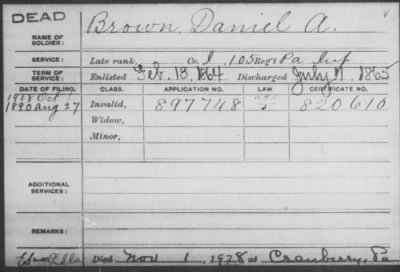 DEAD
Brown, Daniel A.
NAME OF SOLDIER:
SERVICE: Late rank, Co. I, 105 Reg't Pa Inf
TERM OF SERVICE: Enlisted Feb. 13, 1864 Discharged July 11, 1865
DATE OF FILING. CLASS. APPLICATION NO. LAW. CERTIFICATE NO.
1908 Oct
1890 Aug 27 Invalid, 897748 820610
Widow,
Minor,
ADDITIONAL SERVICES:
REMARKS:
Died Nov 1, 1928 at Cranberry, Pa